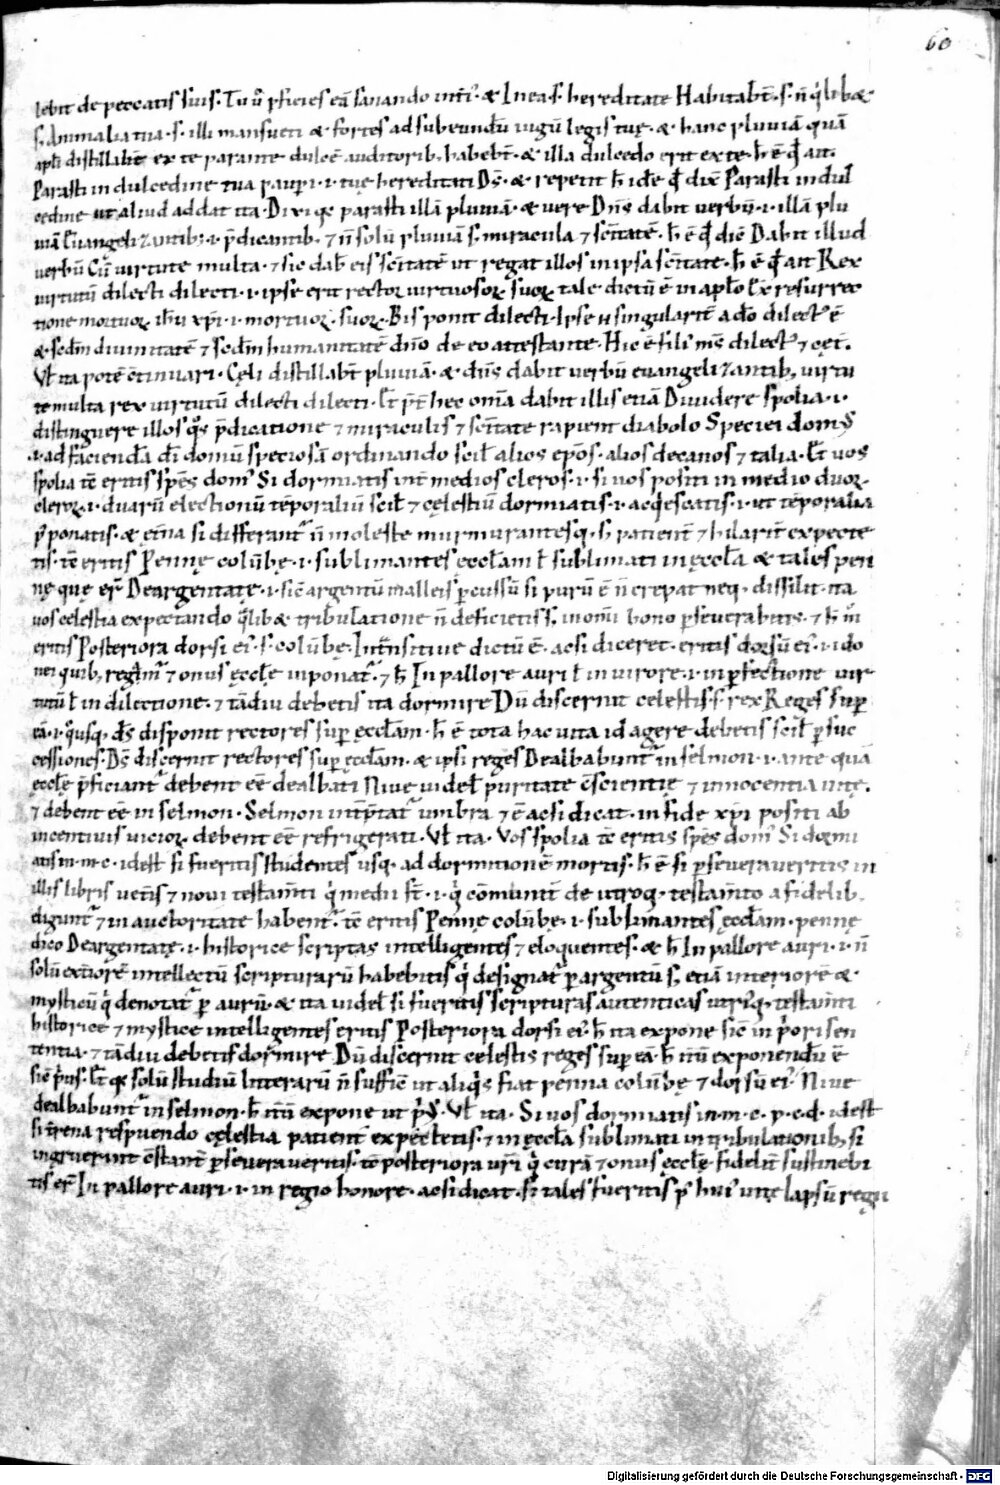 60
lebit de peccatis suis. Tu ũ pficies eã sanando infi. & In ea .s. hereditate Habitabt̄ .s. ñ qͥlibet
s. Animalia tua .s. illi mansueti & fortes ad subeundũ iugũ legis tuę. & hanc pluuiã quã
apłi distillabt̄ ex te parante dulcẽ auditorib; habebt̄ .& illa dulcedo erit ex te. h̄ ẽ qđ ait.
Parasti in dulcedine tua paupi .i. tuę hereditati Ds̄. & repetit h̄ idẽ qđ dix̄ Parasti in dul
cedine ut aliud addat ita. Dixi qͣ parasti illã pluuiã. & uere Dñs dabit uerbũ .i. illã plu
uiã Euangelizantib; .i. p̄dicantib. ⁊ ñ solũ pluuiã .s. miracula ⁊ sc̄itatẽ. h̄ ẽ qđ dic̄ Dabit illud
uerbũ Cũ uirtute multa. ⁊ sic dab̄ eis sc̄itatẽ ut regat illos in ipsa sc̄itate. h̄ ẽ qđ ait Rex
uirtutũ dilecti dilecti .i. ipse erit rector uirtuosoꝝ suoꝝ. tale dictũ ẽ in apło Ex resurrec
tione mortuoꝝ ihu xp̄i .i. mortuoꝝ suoꝝ. Bis ponit dilecti. Ipse ũ singularit̄ a dō dilectꝰ ẽ
& scđm diuinitatẽ ⁊ scđm humanitatẽ dño de eo attestante. Hic ẽ filiꝰ mꝰs dilectꝰ ⁊ cęt̄.
Vł ita potẽ ↄtinuari. Cęli distillabt̄ pluuiã. & dñs dabit uerbũ euangelizantib; uirtu
te multa rex uirtutũ dilecti dilecti. Et p̄t̄ hec om̄ia dabit illis etiã Diuidere spolia .i.
distinguere illos qͦs p̄dicatione ⁊ miraculis ⁊ sc̄itate rapient diabolo Speciei domꝰ
.i. ad faciendã dī domũ speciosã ordinando scił alios ep̄os. alios decanos ⁊ talia. Et uos
spolia tẽ eritis spẽs domꝰ Si dormiatis int̄ medios cleros .i. si uos positi in medio duoꝝ
cleroꝝ .i. duarũ electionũ tẽporaliũ scił ⁊ cęlestiũ dormiatis .i. acqͥescatis .i. ut tẽporalia
p̄ponatis. & et̄na si differantᷣ ñ moleste murmurantesq; s; patient̄ ⁊ hilarit̄ expecte
tis. tẽ eritis Pennę colũbę .i. sublimantes ęccłam ł sublimati in ęccła & tales pen
nę quę er̄ Deargentatę .i. sic̄ argentũ malleis p̄cussũ si purũ ẽ ñ crepat neq; dissilit. ita
uos celestia expectando qͣlib& tribulatione ñ deficietis s; in om̄i bono pseuerabitis. ⁊ h̄ m̄
eritis Posteriora dorsi eiꝰ .s. colũbę. Int̄nsitiue dictũ ẽ. acsi diceret. eritis dorsũ eiꝰ .i. ido
nei quib; regim̄ ⁊ onus ęccłę inponatᷣ. ⁊ h̄ In pallore auri ł in uirore .i. in pfectione uir
tutũ ł in dilectione. ⁊ tãdiu debetis ita dormire Dũ discernit celestis .s. rex Reges sup
eã .i. qͦusq; dš disponit rectores sup ęccłam. h̄ ẽ tota hac uita id agere debetis scił p suc
cessiones. Ds̄ discernit rectores sup ęccłam. & ipsi reges Dealbabuntᷣ in selmon .i. ante quã
ęccłę p̄ficiantᷣ debent eẽ dealbati Niuę uideł puritate ↄscientię ⁊ innocentia uitę.
⁊ debent eẽ in selmon. Selmon int̄p̄tatᷣ umbra ⁊ ẽ acsi dicat. in fide xp̄i positi ab
incentiuis uicioꝝ debent eẽ refrigerati. Vł ita. Vos spolia tẽ eritis spẽs domꝰ Si dormi
atis in .m. c. idest si fueritis studentes usq; ad dormitionẽ mortis. h̄ ẽ si pseueraueritis in
illis libris uet̄is ⁊ noui testam̄ti qͥ medii s̄t .i. qͥ cõmunit̄ de utroq; testam̄to a fidelib;
diguntᷣ ⁊ in auctoritate habentᷣ. tẽ eritis Pennę colũbę .i. sublimantes ęccłam. pennę
dico Deargentatę .i. historice scripturas intelligentes ⁊ eloquentes. & h̄ In pallore auri .i. ñ
solũ ext̄iorẽ intellectũ scripturarũ habebitis qͥ designatᷣ p argentũ s; etiã interiorẽ &
mysticũ qͥ denotatᷣ p aurũ. & ita uideł si fueritis scripturas autenticas utriꝰq; testam̄ti
historice ⁊ mystice intelligentes eritis Posteriora dorsi eiꝰ. h̄ ita expone sic̄ in p̄ori sen
tentia. ⁊ tãdiu debetis dormire Dũ discernit celestis reges sup eã. h̄ itũ exponendũ ẽ
sic̄ p̄us. Et qͣ solũ studiũ litterarũ ñ suffic̄ ut aliqͥs fiat penna colũbę ⁊ dorsũ eiꝰ. Niue
dealbabuntᷣ in selmon. h̄ itũ expone ut p̄ꝰ. Vł ita. Si uos dormiatis in .m. c. p. c. d. idest
si t̄rena respuendo cęlestia patient̄ expectetis. ⁊ in ęccła sublimati in tribulationib; si
ingruerint ↄstant̄ pseueraueritis. tẽ posteriora ur̄i qͥ curã ⁊ onus ęccłę fidelit̄ sustinebi
tis er̄ In pallore auri .i. in regio honore. acsi dicat. si tales fueritis p̄ huiꝰ uitę lapsũ regii
Digitalisierung gefördert durch die Deutsche Forschungsgemeinschaft - DFG